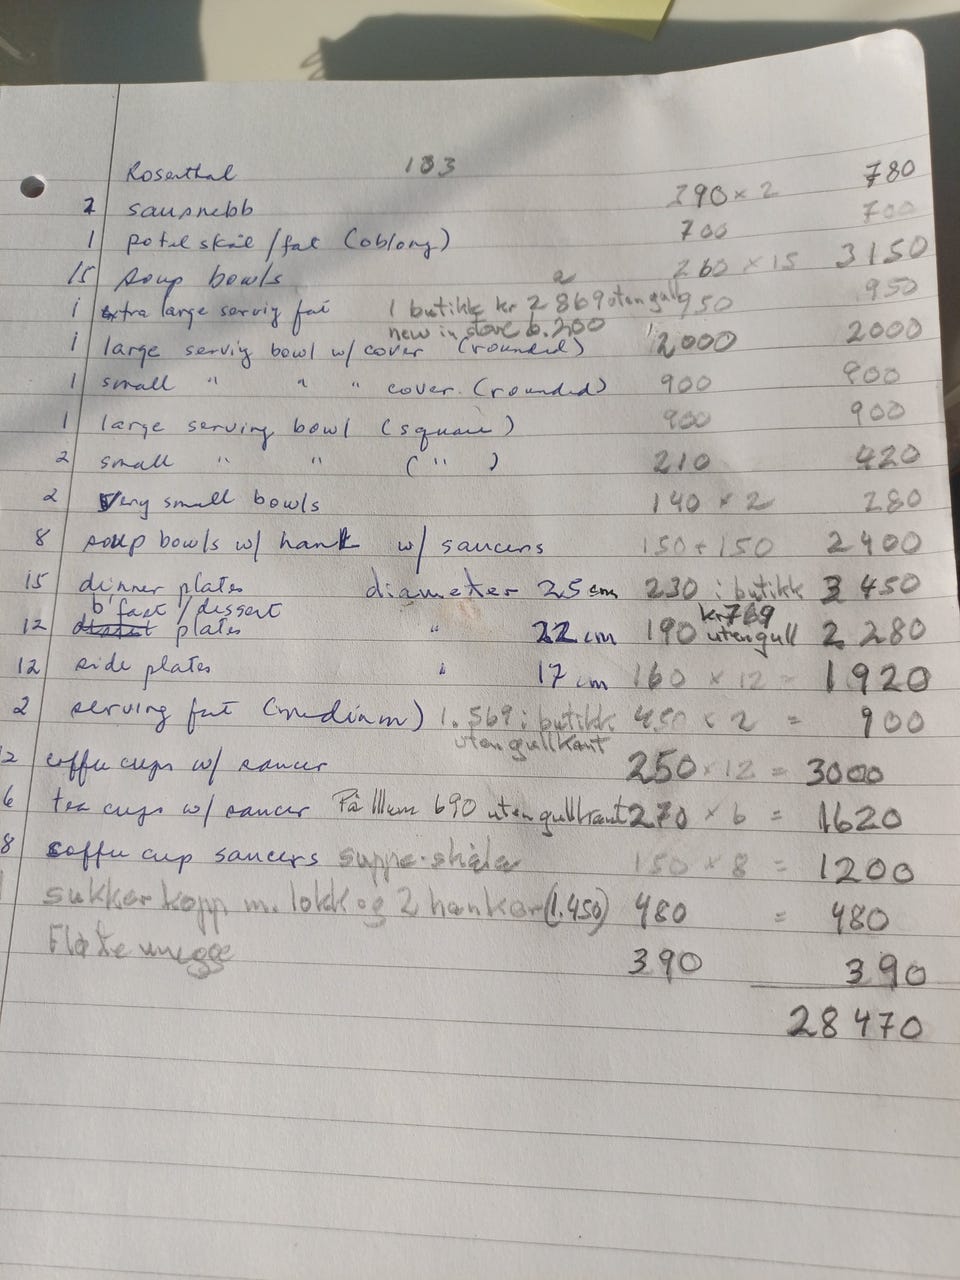 Rosenthal 103
2 sausnebb 290 x 2 780
1 potet skål/fat (oblong) 700 700
15 soup bowls a 260 x 15 3150
1 extra large servig fat 1 butikk kr 2869 uten gull 950 950
new in store 6.200
1 large servig bowl w/ cover (rounded) 2000 2000
1 small " " " cover. (rounded) 900 900
1 large serving bowl (square) 900 900
2 small " " ( " ) 210 420
2 Very small bowls 140 x 2 280
8 soup bowls w/ hank w/ saucers 150 + 150 2400
15 dinner plates diameter 25 cm 230 i butikk 3 450
b'fast/dessert kr 769
12 plates " 22 cm 190 uten gull 2 280
12 side plates " 17 cm 160 x 12 = 1920
2 serving fat (medium) 1.569 i butikk 450 x 2 = 900
uten gullkant
12 coffee cups w/ saucer 250 x 12 = 3000
6 tea cups w/ saucer På Illum 690 uten gullkant 270 x 6 = 1620
8 coffee cup saucers suppe-skåler 150 x 8 = 1200
1 sukkerkopp m. lokk og 2 hanker (1.450) 480 = 480
Fløtemugge 390 390
28 470